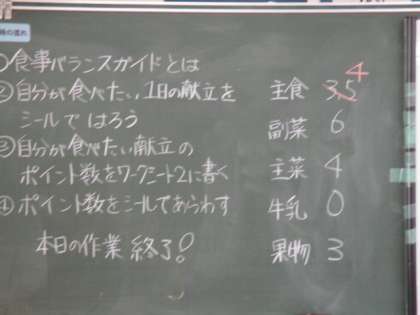 ①食事バランスガイドとは
②自分が食べたい1日の献立を
シールで はろう
③自分が食べたい献立の
ポイント数をワークシート2に書く
④ポイント数をシールであらわす
本日の作業 終了!
主食 3.5 4
副菜 6
主菜 4
牛乳 0
果物 3